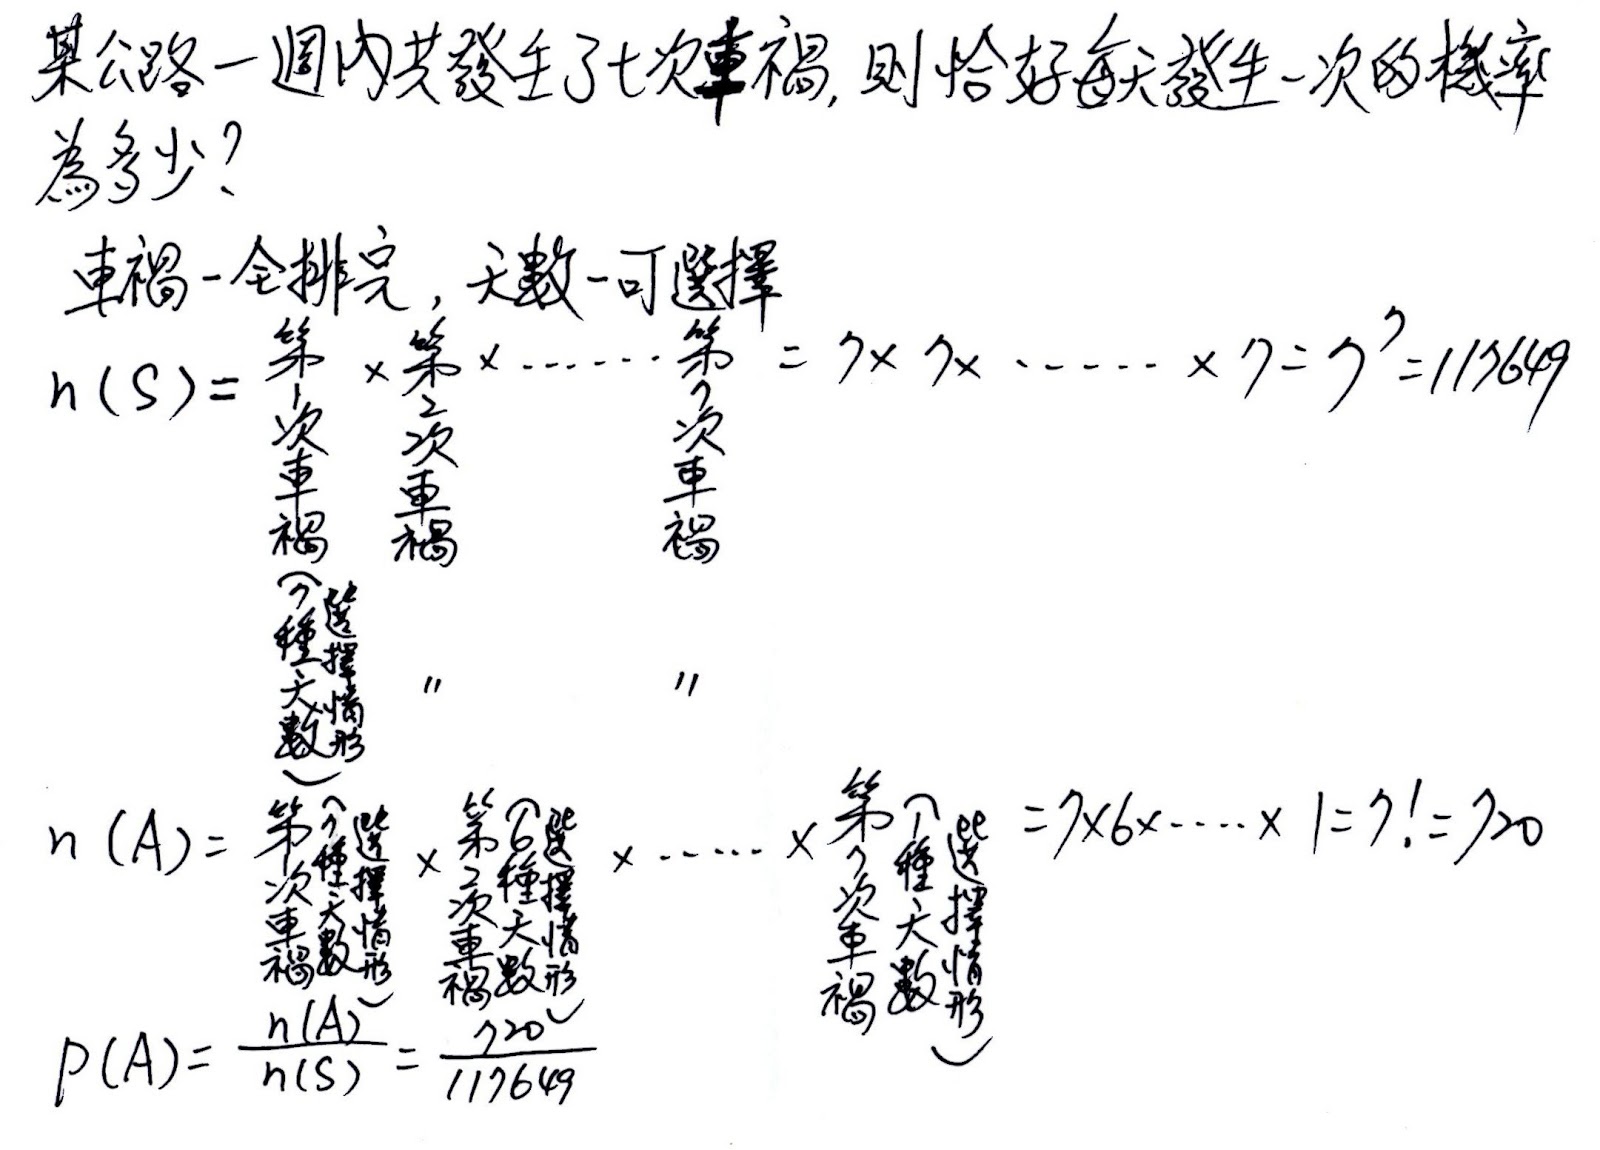 某公路一週內共發生了七次車禍,則恰好每天發生一次的機率
為多少?
車禍-全排完,天數-可選擇
n(S)=第1次車禍×第2次車禍×······第7次車禍=7×7×······×7=7⁷=117649
(7種天數選擇情形) " "
n(A)=第1次車禍(7種天數選擇情形)×第2次車禍(6種天數選擇情形)×······×第7次車禍(1種天數選擇情形)=7×6×·····×1=7!=720
P(A)=n(A)/n(S)=720/117649